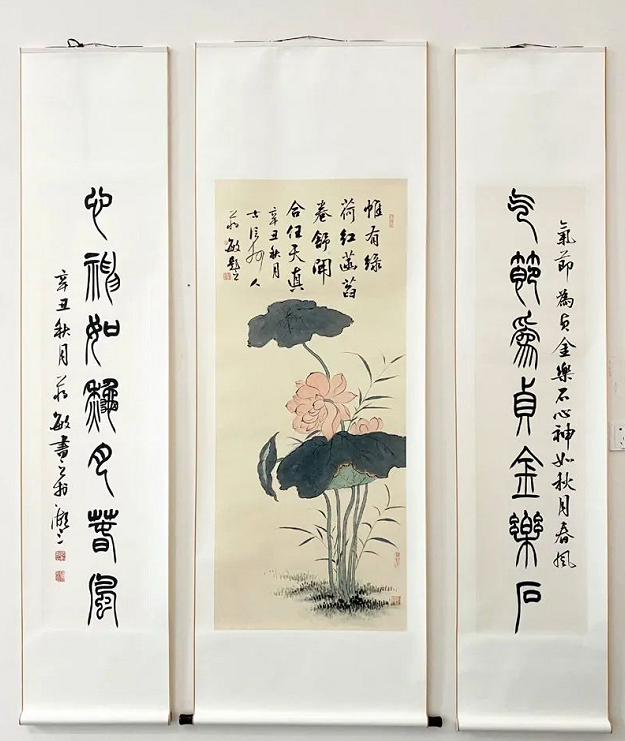 氣節為貞金樂石心神如秋月春風
气節為貞金樂石
惟有綠
荷紅菡萏
卷舒開
合任天真
辛丑秋月
人
敏題
心神如秋月春風
辛丑秋月 敏書